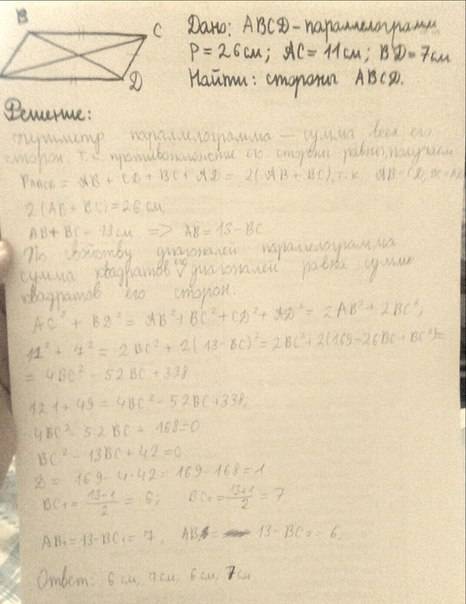 B
C
D
Дано: ABCD - параллелограмм
P = 26 см; AC = 11 см; BD = 7 см
Найти: стороны ABCD.
Решение:
Периметр параллелограмма — сумма всех его
сторон. Т.к. противоположные его стороны равны, получаем
= AB + CD + BC + AD = 2(AB + BC), т.к. AB = CD,
2(AB + BC) = 26 см,
AB + BC = 13 см => AB = 13 - BC
По свойству диагоналей параллелограмма
сумма квадратов его диагоналей равна сумме
квадратов его сторон:
AC² + BD² = AB² + BC² + CD² + AD² = 2AB² + 2BC²,
11² + 7² = 2BC² + 2(13 - BC)² = 2BC² + 2(169 - 26BC + BC²) =
= 4BC² - 52BC + 338
121 + 49 = 4BC² - 52BC + 338,
4BC² - 52BC + 168 = 0
BC² - 13BC + 42 = 0
D = 169 - 4·42 = 169 - 168 = 1
BC₁ = = 6; BC₂ = 13+1/2 = 7
AB₁ = 13 - BC₁ = 7, = 13 - BC₂ = 6,
Ответ: 6 см, 7 см, 6 см, 7 см